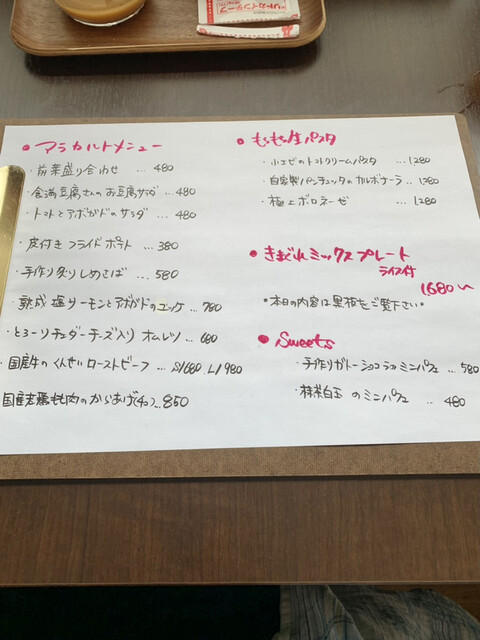 • アラカルトメニュー
・前菜盛り合わせ ... 480
・豆腐さんのお豆腐サラダ ... 480
・トマトとアボガドのサラダ ... 480
・皮付きフライドポテト ... 380
・手作り炙りしめさば ... 580
・熟成塩サーモンとアボガドのユッケ ... 780
・とろーりチェダーチーズ入り オムレツ ... 680
・国産牛のくんせいローストビーフ ... S1680 L1980
国産若鶏もも肉のからあげ(4コ) ... 850
• もちもち生パスタ
・小エビのトマトクリームパスタ ... 1280
・自家製パンチェッタのカルボナーラ ... 1380
・極上ボロネーゼ ... 1280
• きまぐれミックスプレート
ライス付
1,680〜
*本日の内容は黒板をご覧下さい*
• Sweets
・手作りガトーショコラのミニパフェ ... 580
・抹茶白玉のミニパフェ ... 480